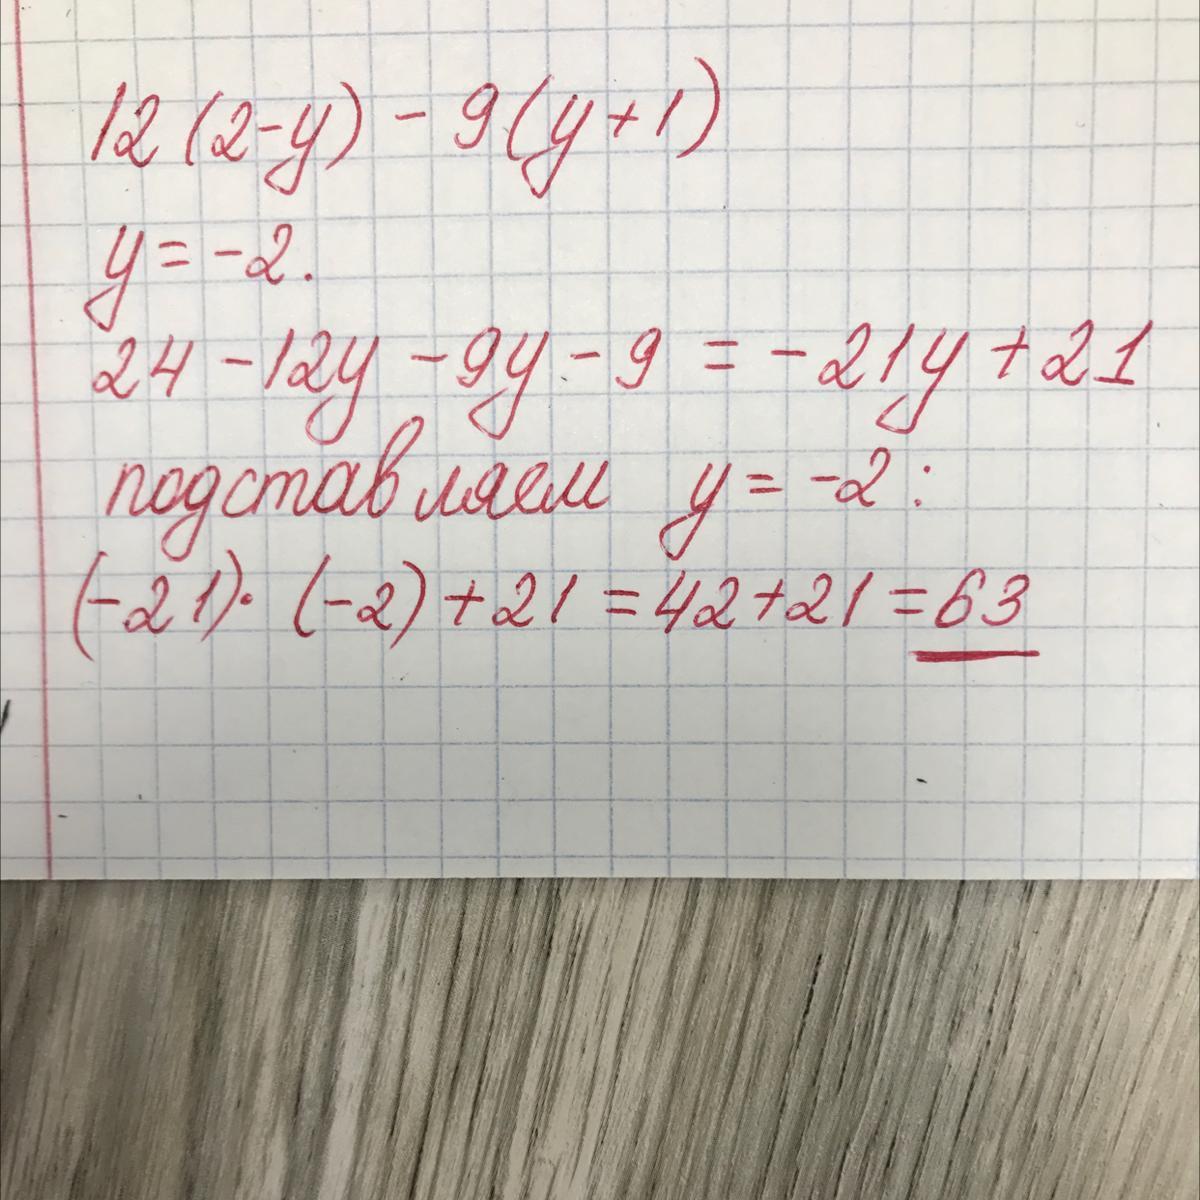 12(2-y) - 9(y+1)
y = -2.
24 - 12y - 9y - 9 = -21y + 21
подставляем y = -2:
(-21)· (-2) + 21 = 42 + 21 = 63